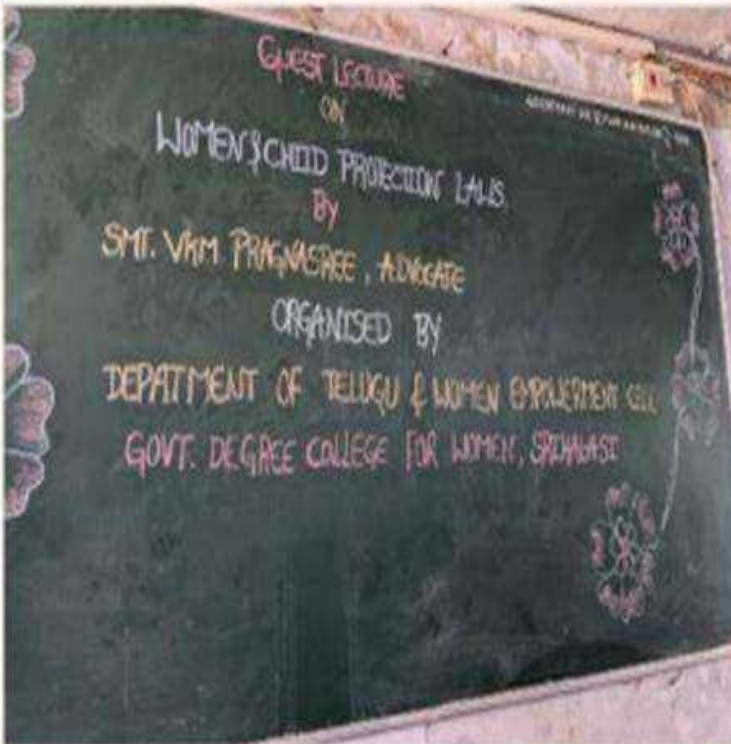 GUEST LECTURE
ON
WOMEN & CHILD PROTECTION LAWS.
By
SMT. VKM PRAGNASREE, ADVOCATE
ORGANISED BY
DEPATMENT OF TELUGU & WOMEN EMPOWERMENT CELL
GOVT. DEGREE COLLEGE FOR WOMEN, SRIKALASTI